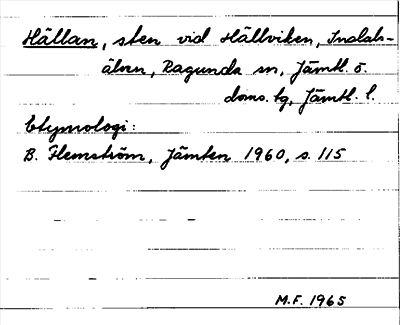 Hällan, sten vid Hällviken, Indals-
älven, Ragunda sn, Jämtl. ö.
doms. tg, Jämtl. l.
Etymologi:
B. Flemström, Jämten 1960, s. 115
M.F. 1965